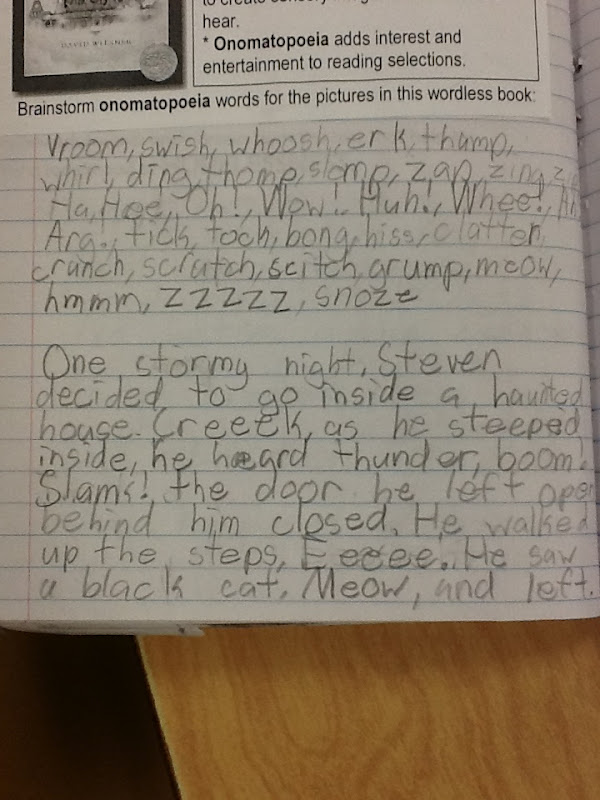 DAVID WIESNER
hear.
* Onomatopoeia adds interest and
entertainment to reading selections.
Brainstorm onomatopoeia words for the pictures in this wordless book:
Vroom, swish, whoosh, erk, thump,
whirl, ding, thomp, slomp, zap, zing,
Ha, Hee, Oh!, Wow!, Huh!, Whee!,
Arg., tick, toch, bong, hiss, clatter,
crunch, scratch, scitch, grump, meow,
hmmm, zzzzz, snoze
One stormy night, Steven
decided to go inside a haunted
house. Creeek, as he steeped
inside, he heard thunder, boom!
Slams! the door he left open
behind him closed. He walked
up the steps, Eeeee. He saw
a black cat, Meow, and left.